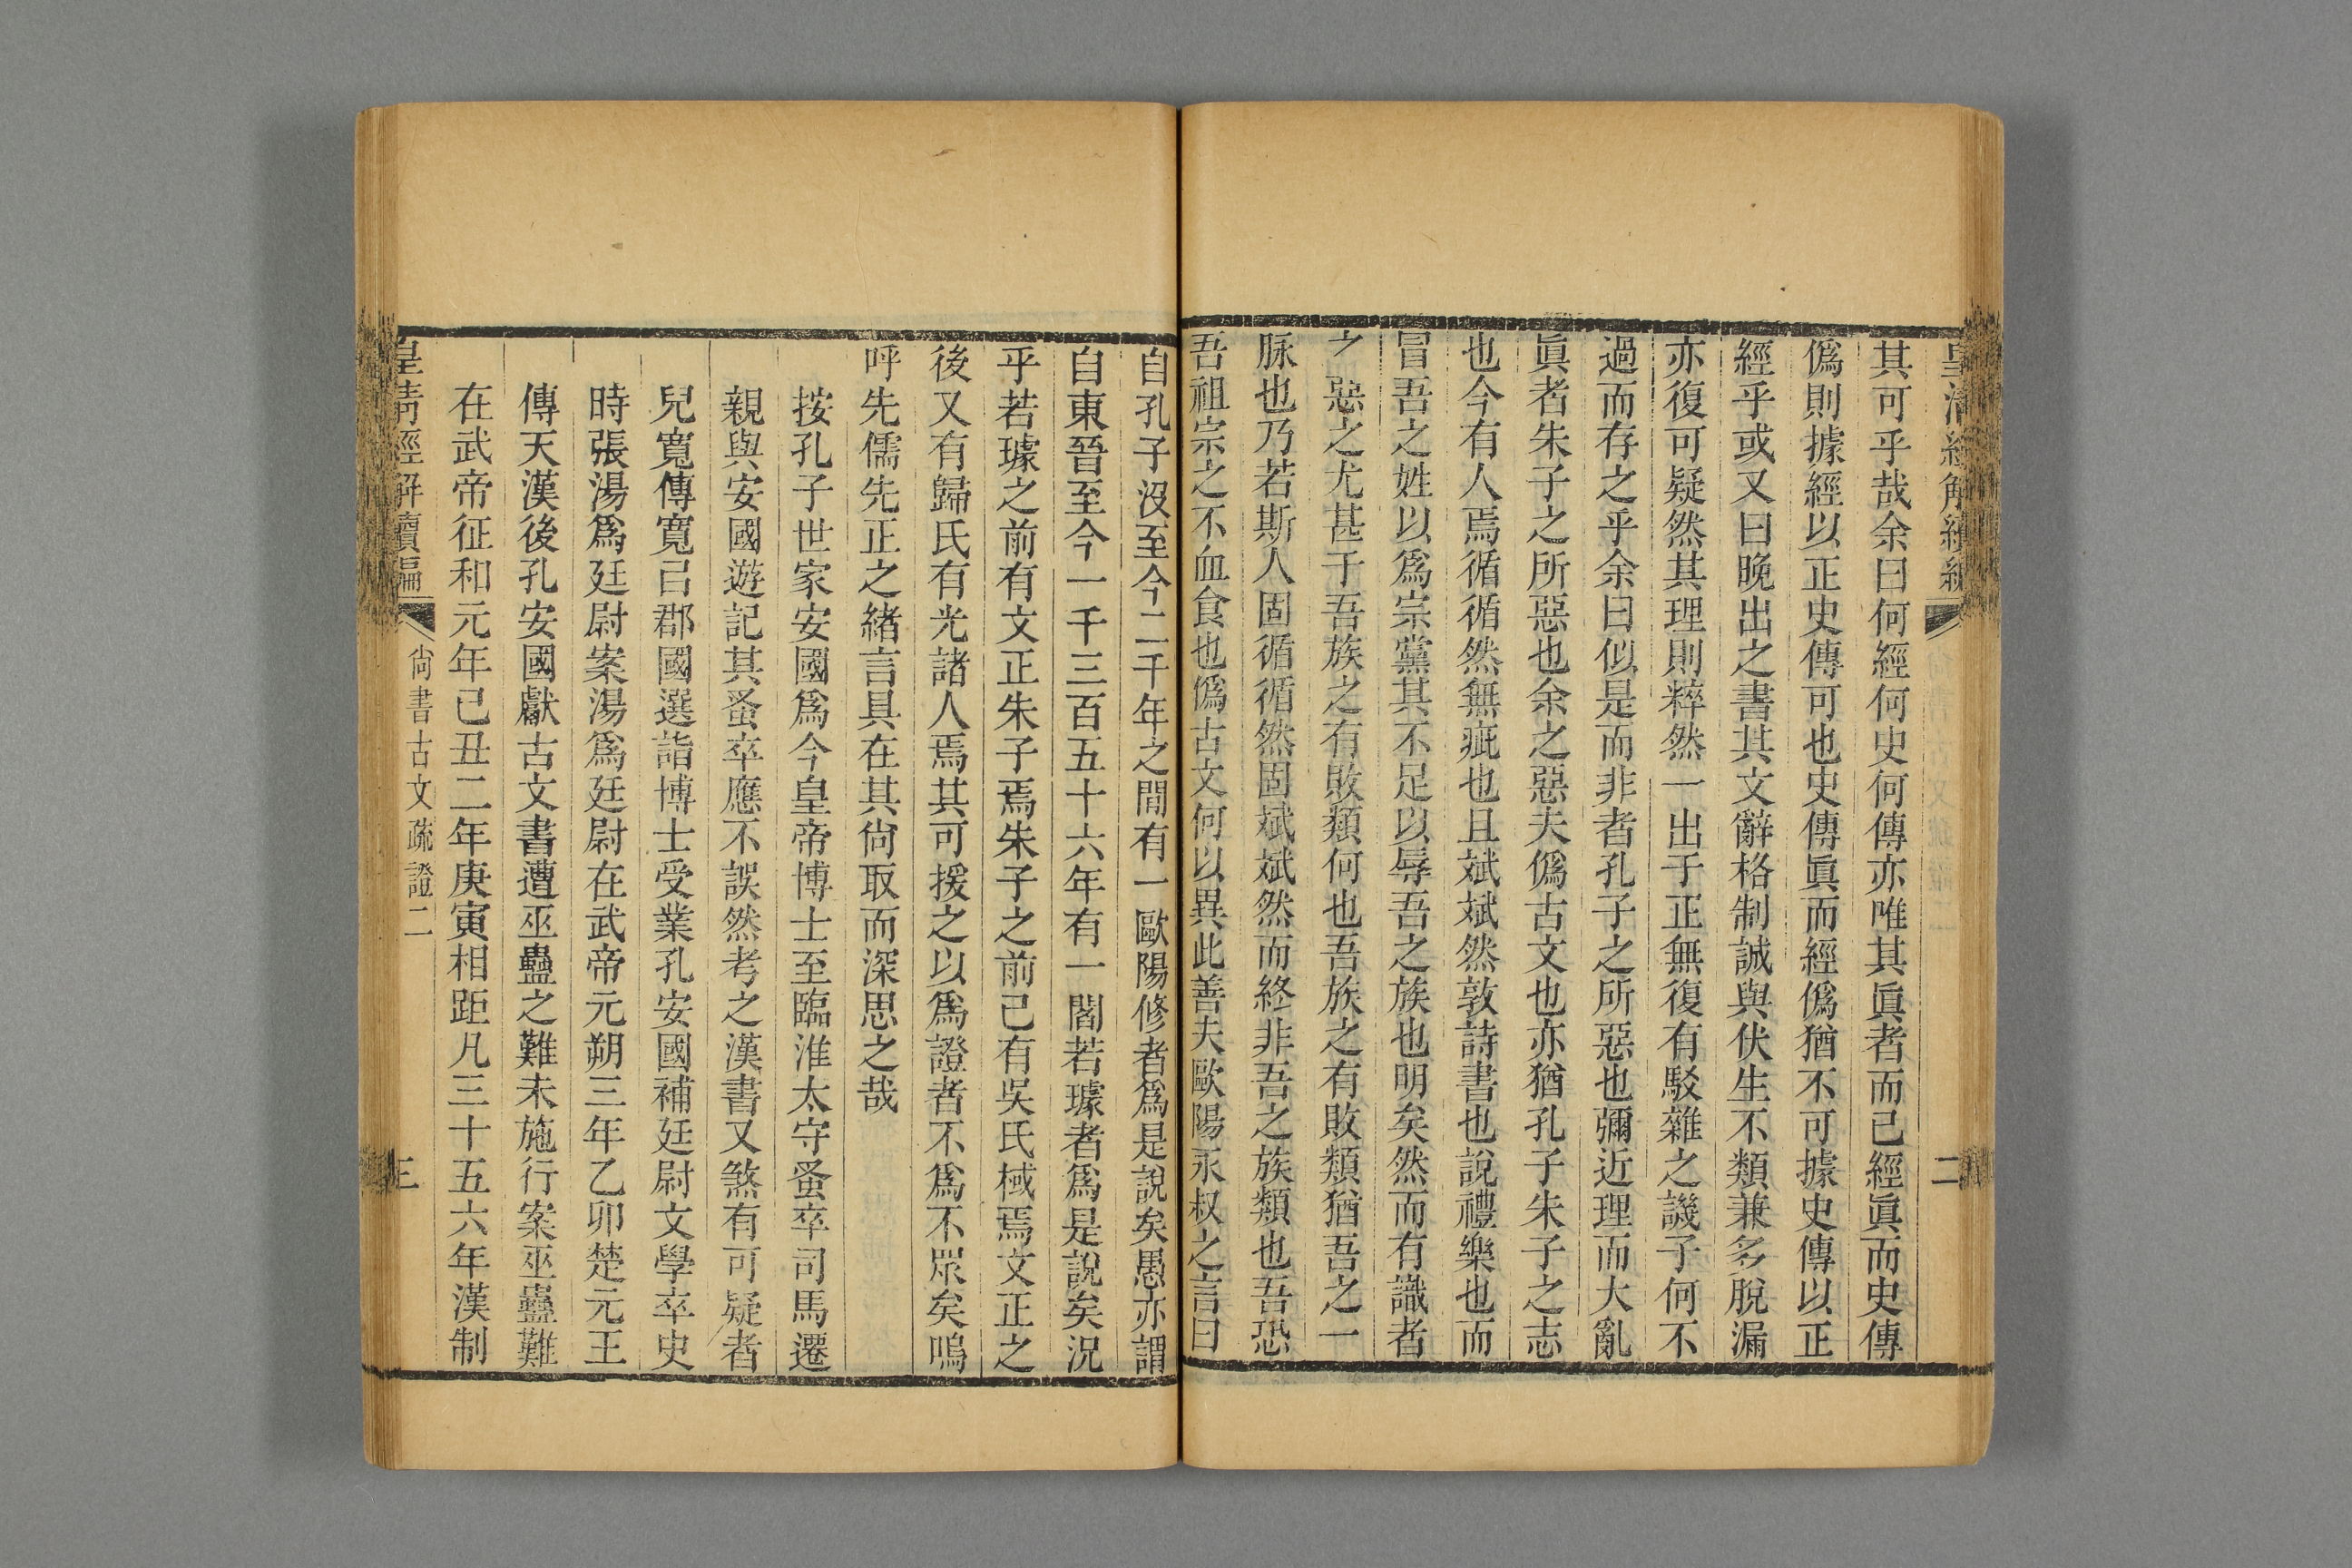 其可乎哉余曰何經何史何傳亦唯其眞者而已經眞而史傳
僞則據經以正史傳可也史傳眞而經僞猶不可據史傳以正
經乎或又曰晚出之書其文辭格制誠與伏生不類兼多脫漏
亦復可疑然其理則粹然一出于正無復有駁雜之譏子何不
過而存之乎余曰似是而非者孔子之所惡也彌近理而大亂
眞者朱子之所惡也余之惡夫僞古文也亦猶孔子朱子之志
也今有人焉循循然無疵也且斌斌然敦詩書也說禮樂也而
冒吾之姓以爲宗黨其不足以辱吾之族也明矣然而有識者
之惡之尤甚于吾族之有敗類何也吾族之有敗類猶吾之一
脉也乃若斯人固循循然固斌斌然而終非吾之族類也吾恐
吾祖宗之不血食也僞古文何以異此善夫歐陽永叔之言曰
二
自孔子沒至今二千年之閒有一歐陽修者爲是說矣愚亦謂
自東晉至今一千三百五十六年有一閻若璩者爲是說矣況
乎若璩之前有文正朱子焉朱子之前已有吳氏棫焉文正之
後又有歸氏有光諸人焉其可援之以爲證者不爲不眾矣嗚
呼先儒先正之緒言具在其尙取而深思之哉
按孔子世家安國爲今皇帝博士至臨淮太守蚤卒司馬遷
親與安國遊記其蚤卒應不誤然考之漢書又煞有可疑者
兒寬傳寬以郡國選詣博士受業孔安國補廷尉文學卒史
時張湯爲廷尉案湯爲廷尉在武帝元朔三年乙卯楚元王
傳天漢後孔安國獻古文書遭巫蠱之難未施行案巫蠱難
在武帝征和元年己丑二年庚寅相距凡三十五六年漢制
皇淸經解續編
尙書古文疏證二
三